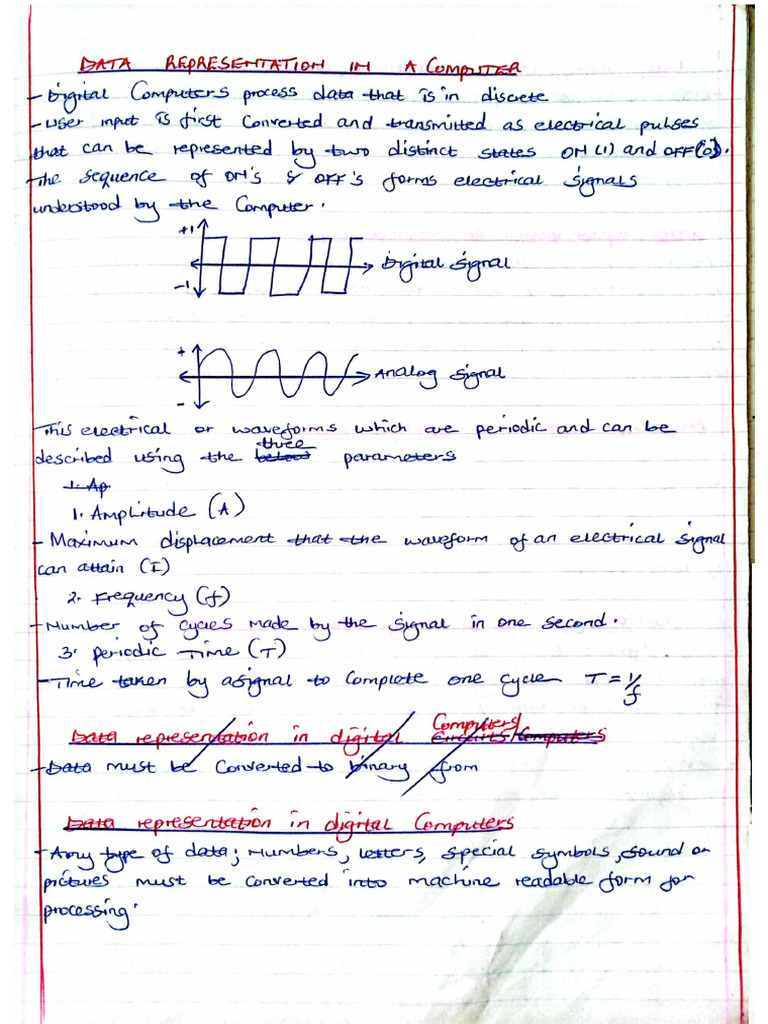 DATA REPRESENTATION IN A COMPUTER
- Digital Computers process data that is in discrete
- User input is first Converted and transmitted as electrical pulses
that can be represented by two distinct states ON (1) and OFF(0).
- The sequence of ON's & OFF's forms electrical signals
understood by the Computer.
+1
Digital signal
-1
+
Analog signal
-
This electrical or waveforms which are periodic and can be
three
described using the below parameters
1. Ap
1. Amplitude (A)
- Maximum displacement that the waveform of an electrical signal
can attain (I)
2. Frequency (f)
- Number of cycles made by the signal in one second.
3. periodic Time (T)
- Time taken by a signal to Complete one cycle T = 1/f
Computers
Data representation in digital circuits/Computers
- Data must be Converted to binary from
Data representation in digital Computers
- Any type of data; Numbers, letters, special symbols, sound or
pictures must be converted into machine readable form for
processing.